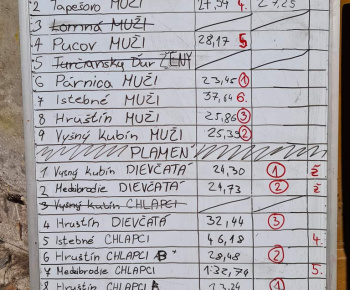 2 Tapešovo MUŽI 27,54 4. 27,25
3 Lomná MUŽI
4 Pucov MUŽI 28,17 5
5 Turčiansky Ďur ŽENY
6 Párnica MUŽI 23,45 1
7 Istebné MUŽI 37,64 6.
8 Hruštín MUŽI 25,86 3
9 Vyšný Kubín MUŽI 25,35 2
PLAMEŇ
1 Vyšný Kubín DIEVČATÁ 21,30 1 ž
2 Medzibrodie DIEVČATÁ 21,73 2 ž
3 Vyšný Kubín CHLAPCI
4 Hruštín DIEVČATÁ 32,44 3
5 Istebné CHLAPCI 46,18 4.
6 Hruštín CHLAPCI B 28,48 2
7 Medzibrodie CHLAPCI 1:32,74 5.
8 Hruštín CHLAPCI A 23,24 1